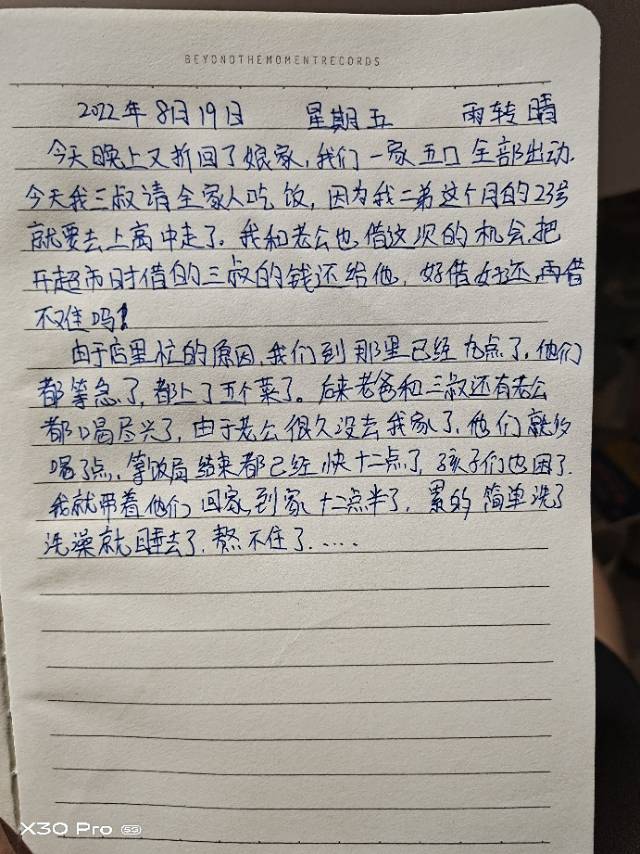 BEYONDTHEMOMENTRECORDS
2022年8月19日 星期五 雨转晴
今天晚上又折回了娘家,我们一家五口全部出动.
今天我三叔请全家人吃饭,因为我二弟这个月的23号
就要去上高中走了.我和老公也借这次的机会,把
开超市时借的三叔的钱还给他,好借好还,再借
不难吗!
由于店里忙的原因,我们到那里已经九点了,他们
都等急了,都上了五个菜了。后来老爸和三叔还有老公
都喝尽兴了,由于老公很久没去我家了,他们就多
喝了点,等饭局结束都已经快十二点了,孩子们也困了.
我就带着他们回家,到家十二点半了,累的简单洗了
洗澡就睡去了.熬不住了.....
X30 Pro 5G